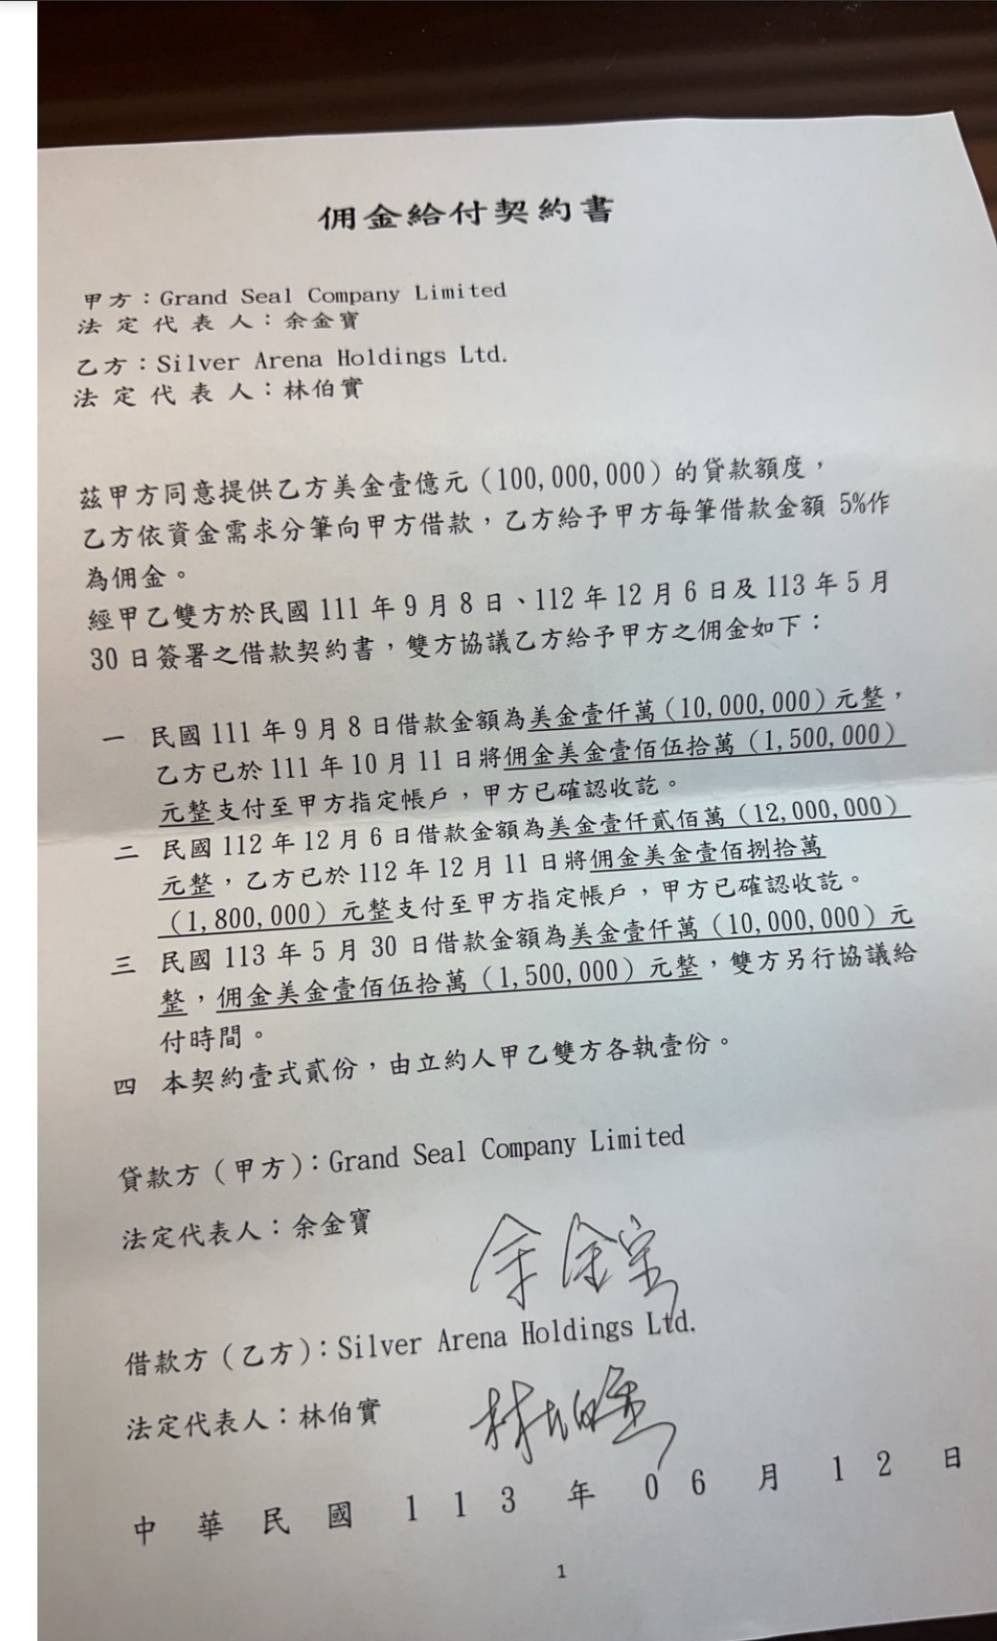 佣金給付契約書
甲方：Grand Seal Company Limited
法定代表人：余金寶
乙方：Silver Arena Holdings Ltd.
法定代表人：林伯實
茲甲方同意提供乙方美金壹億元（100,000,000）的貸款額度，
乙方依資金需求分筆向甲方借款，乙方給予甲方每筆借款金額 5%作
為佣金。
經甲乙雙方於民國 111 年 9 月 8 日、112 年 12 月 6 日及 113 年 5 月
30 日簽署之借款契約書，雙方協議乙方給予甲方之佣金如下：
一 民國 111 年 9 月 8 日借款金額為美金壹仟萬（10,000,000）元整，
乙方已於 111 年 10 月 11 日將佣金美金壹佰伍拾萬（1,500,000）
元整支付至甲方指定帳戶，甲方已確認收訖。
二 民國 112 年 12 月 6 日借款金額為美金壹仟貳佰萬（12,000,000）
元整，乙方已於 112 年 12 月 11 日將佣金美金壹佰捌拾萬
（1,800,000）元整支付至甲方指定帳戶，甲方已確認收訖。
三 民國 113 年 5 月 30 日借款金額為美金壹仟萬（10,000,000）元
整，佣金美金壹佰伍拾萬（1,500,000）元整，雙方另行協議給
付時間。
四 本契約壹式貳份，由立約人甲乙雙方各執壹份。
貸款方（甲方）：Grand Seal Company Limited
法定代表人：余金寶
余金宝
借款方（乙方）：Silver Arena Holdings Ltd.
法定代表人：林伯實
林伯實
中華民國 113 年 06 月 12 日
1